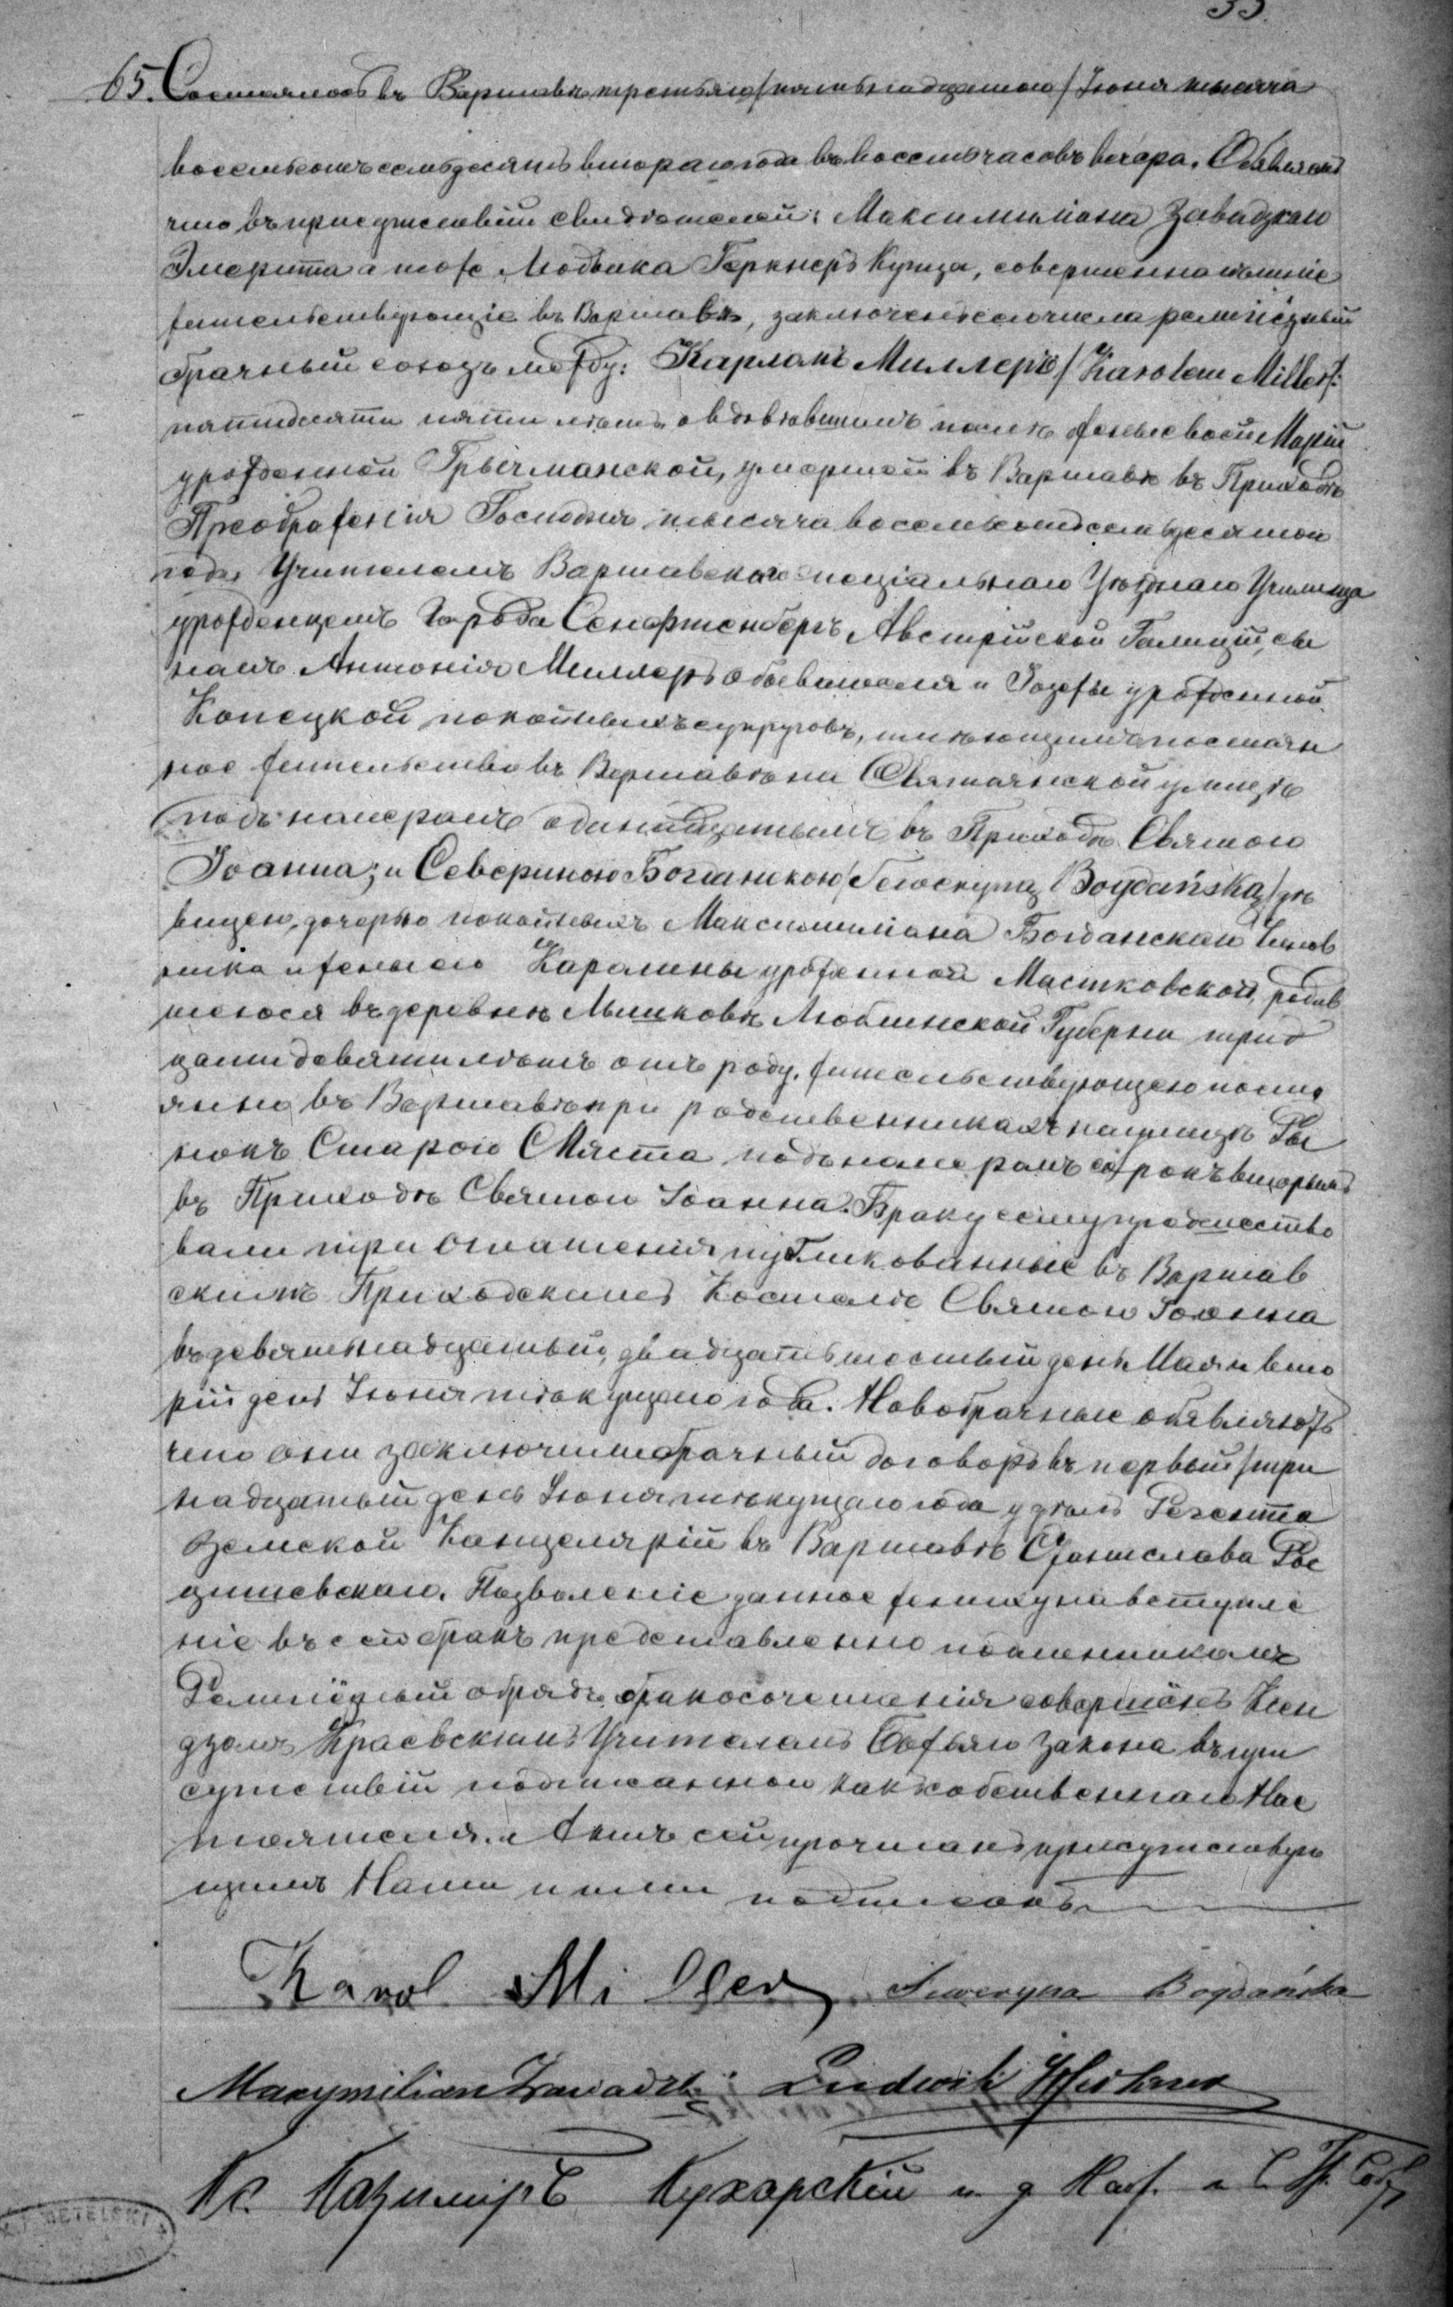 65. Состоялось въ Варшавѣ третьяго/пятьнадцатого/Іюня тысяча
восемьсотъ семьдесятъ втораго года въ восемь часовъ вечера. Объявляемъ
что въ присутствіи свидѣтелей: Максимиліана Завадзкаго
Эмерита а тоже Людвика Геркнеръ Купца, совершеннолѣтніе
жительствующіе въ Варшавѣ, заключенъ сего числа религіозный
брачный союзъ между: Карломъ Миллеръ/Karolem Miller/:
пятидесяти пяти лѣтъ овдовѣвшимъ послѣ жены своей Маріи
урожденной Грычманской, умершей въ Варшавѣ въ Приходѣ
Преображенія Господня тысяча восемьсотъ семьдесятомъ
года, Учителемъ Варшавскаго спеціальнаго Уѣзднаго Училища
урожденцемъ Города Сенфтенбергъ Австрійской Галиціи, сы
номъ Антонія Миллеръ обывателя и Іозефы урожденной
Копецкой покойныхъ супруговъ, имѣющимъ постоян
ное жительство въ Варшавѣ на Святоянской улицѣ
подъ номеромъ одинадцатымъ въ Приходѣ Святаго
Іоанна; и Севериною Богданскою/Seweryną Bogdańską/дѣ
вицею, дочерью покойныхъ Максимиліана Богданскаго Чинов
ника и жены его Каролины урожденной Мастковской, родив
шеюся въ деревнѣ Мышковѣ Люблинской Губерни трид
цати девяти лѣтъ отъ роду, жительствующею посто
янно въ Варшавѣ при родственникахъ на улицѣ Ры
нокъ Старого Мяста подъ номеромъ сорокъ вторымъ
въ Приходѣ Святаго Іоанна. Браку сему предшество
вали три оглашенія публикованные въ Варшав
скимъ Приходскимъ Костелѣ Святаго Іоанна
въ девятьнадцатый, двадцать шестый день Мая и вто
рій день Іюня текущаго года. Новобрачные объявляютъ
что они заключили брачный договоръ въ первый/три
надцатый день Іюня текущаго года у дѣлъ Регента
Земской Канцеляріи въ Варшавѣ Станислава Ры
цишевскаго. Позволеніе данное жениху на вступле
ніе въ сей бракъ представленно подлинникомъ
Религіозный обрядъ бракосочетанія совершёнъ Ксен
дзомъ Краевскимъ Учителемъ Божьяго Закона въ при
сутствіи подписанного какъ собственнаго Нас
тоятеля. Актъ сей прочитанъ присутствую
щимъ Нами и ими подписанъ
Karol Miller Seweryna Bogdańska
Maxymilian Zawadzki Ludwik Herkner
Кс. Казимиръ Кухарскій и д Наст. и С Гр. Сост